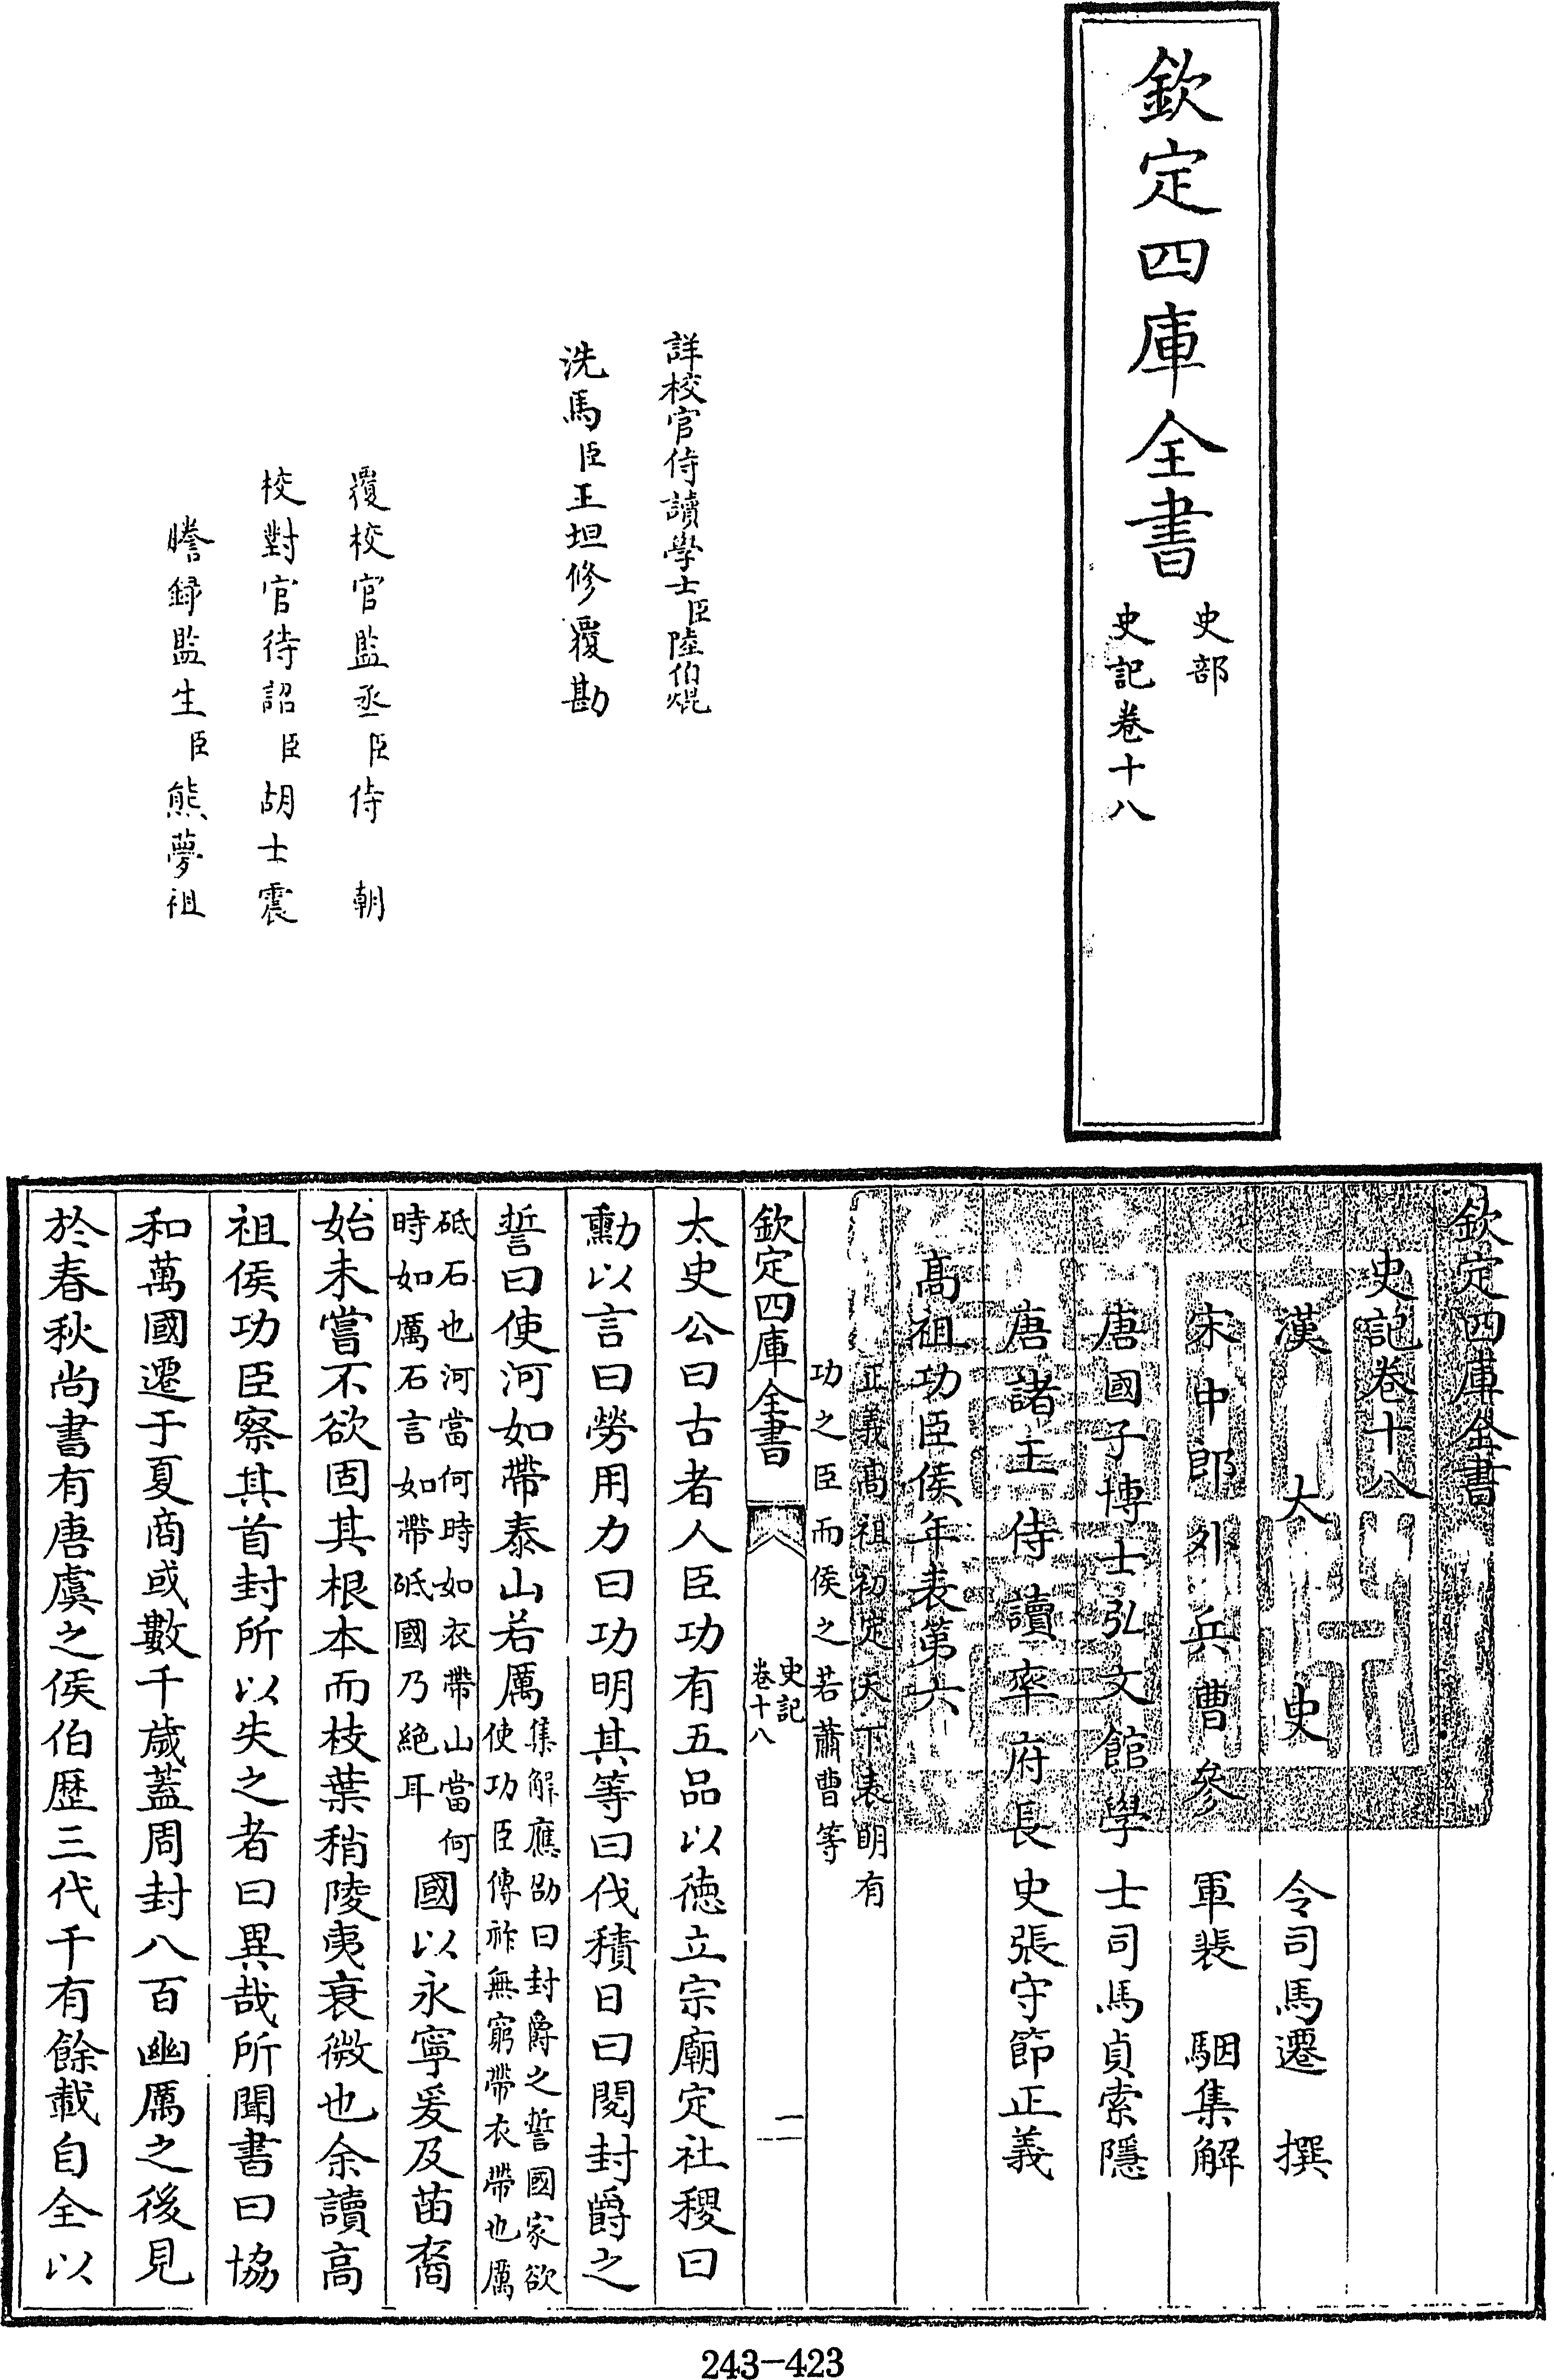 欽定四庫全書
史部
史記卷十八
詳校官侍讀學士臣陸伯焜
洗馬臣王坦修覆勘
覆校官監丞臣侍　朝
校對官待詔臣胡士震
謄録監生臣熊夢祖
欽定四庫全書
史記卷十八
漢　太　史　令司馬遷　撰
宋中郎外兵曹參軍裴　駰集解
唐國子博士弘文館學士司馬貞索隱
唐諸王侍讀率府長史張守節正義
髙祖功臣侯年表第六
正義髙祖初定天下表明有
功之臣而侯之若蕭曹等
欽定四庫全書
史記
卷十八
一
太史公曰古者人臣功有五品以徳立宗廟定社稷曰
勳以言曰勞用力曰功明其等曰伐積日曰閱封爵之
誓曰使河如帶泰山若厲集解應劭曰封爵之誓國家欲
使功臣傳祚無窮帶衣帶也厲
砥石也河當何時如衣帶山當何
時如厲石言如帶砥國乃絶耳國以永寧爰及苗裔
始未嘗不欲固其根本而枝葉稍陵夷衰微也余讀高
祖侯功臣察其首封所以失之者曰異哉所聞書曰協
和萬國遷于夏商或數千歲蓋周封八百幽厲之後見
於春秋尚書有唐虞之侯伯歴三代千有餘載自全以
243-423